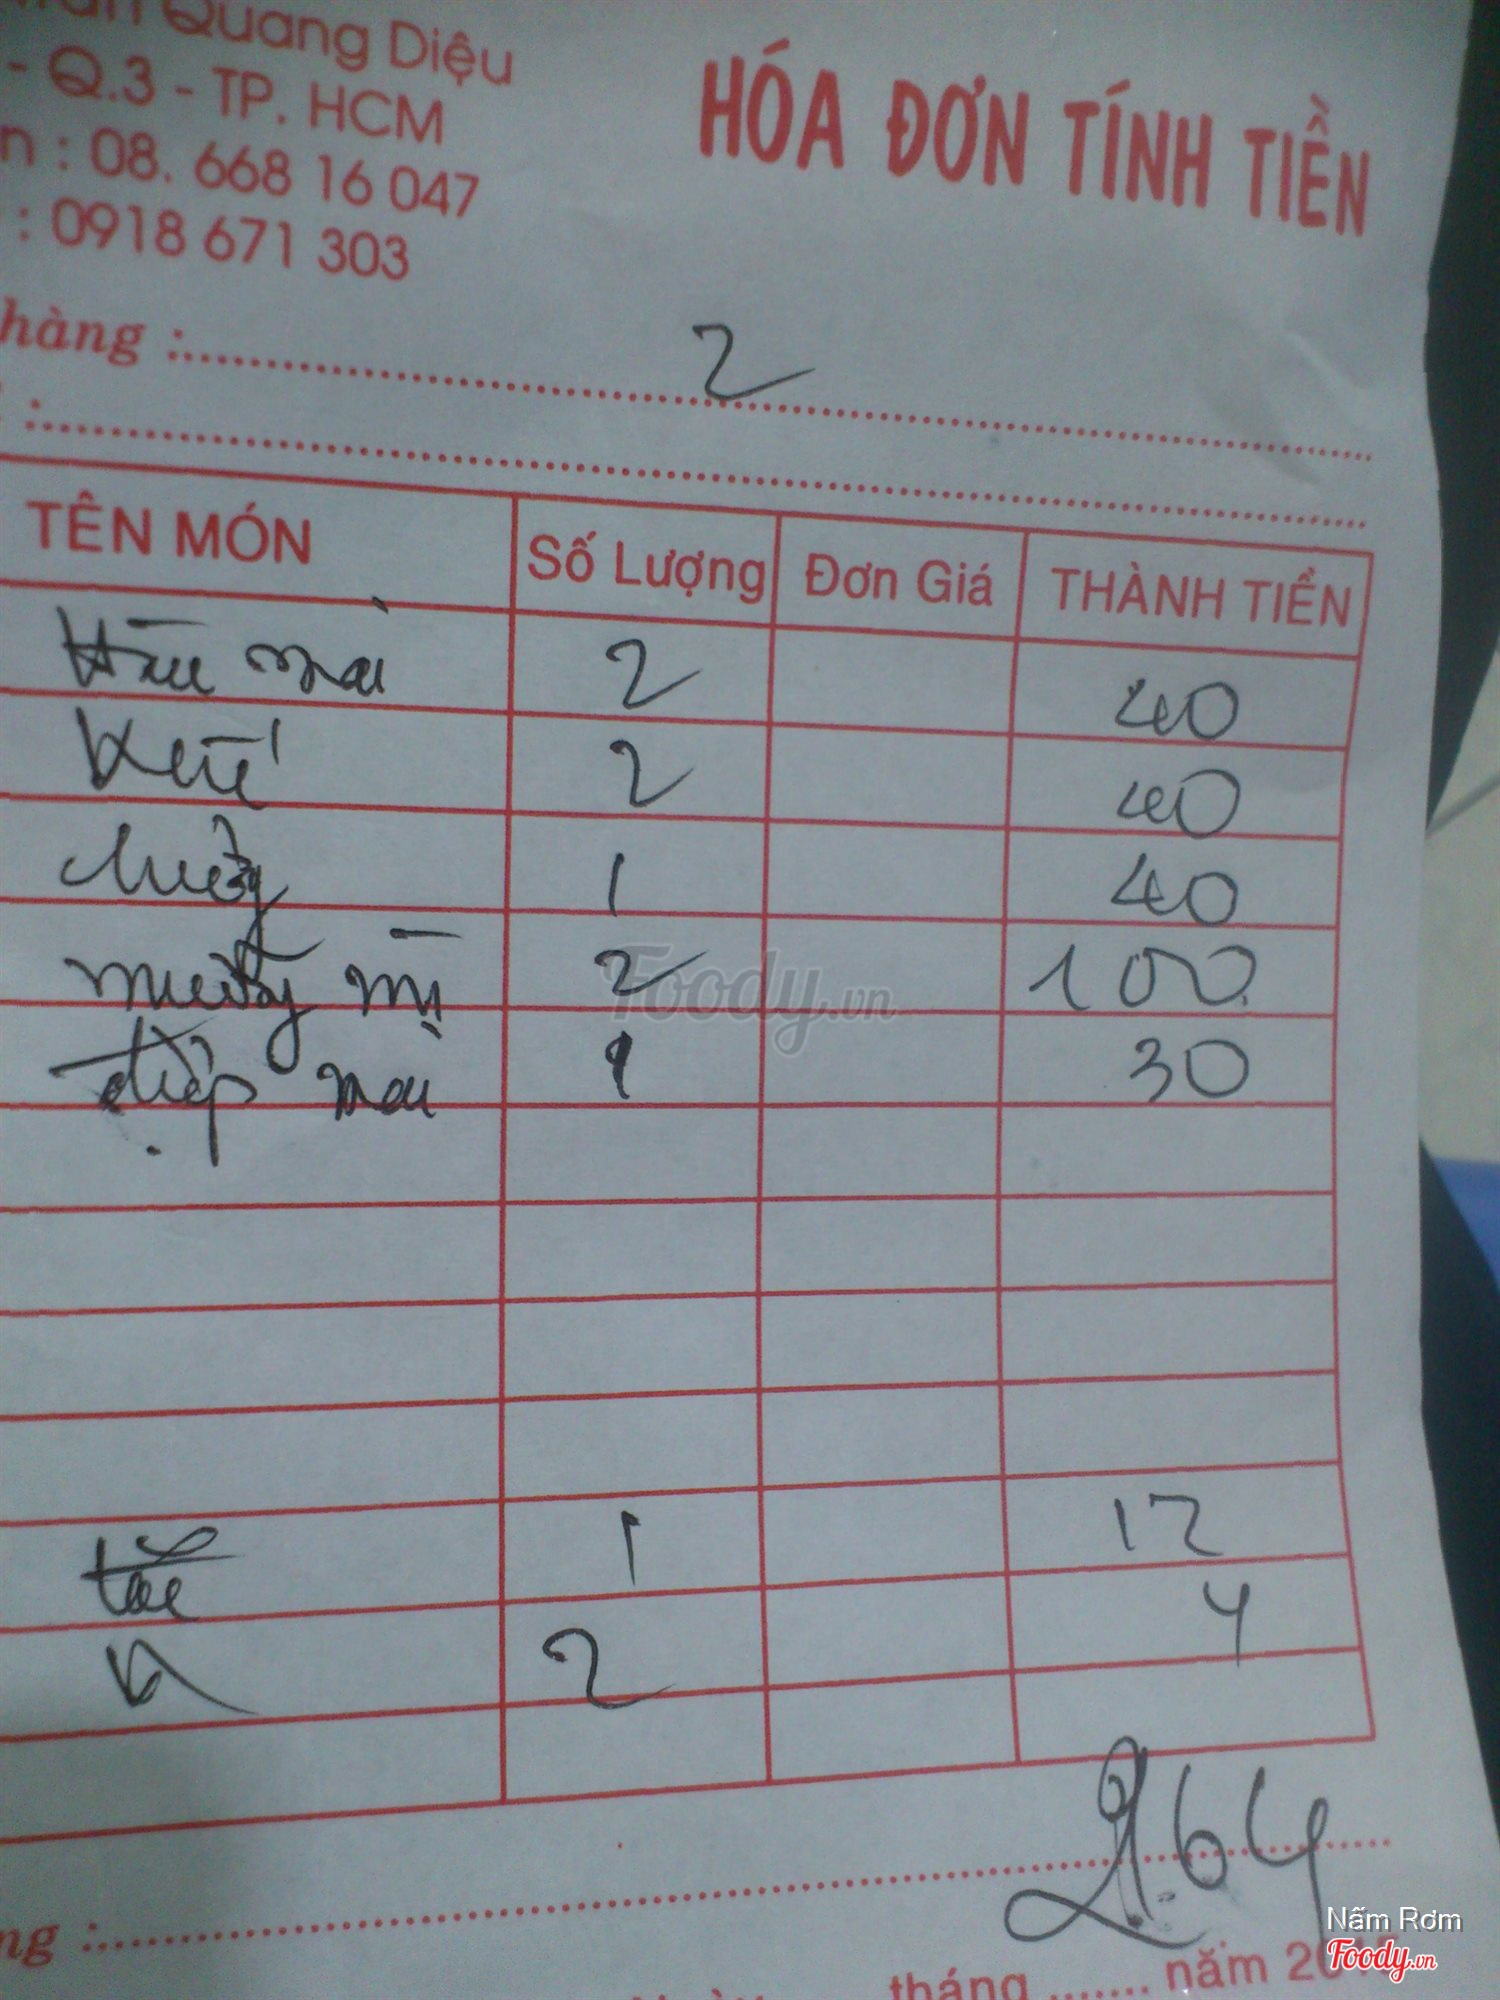 Quang Diệu
- Q.3 - TP. HCM
n : 08. 668 16 047
: 0918 671 303
HÓA ĐƠN TÍNH TIỀN
hàng : 2
:
TÊN MÓN Số Lượng Đơn Giá THÀNH TIỀN
2 40
2 40
1 40
mỡ 2 100
điệp 1 30
tắc 1 12
K 2 4
264
ng :
tháng ....... năm 201
Foody.vn
Nấm Rơm
Foody.vn